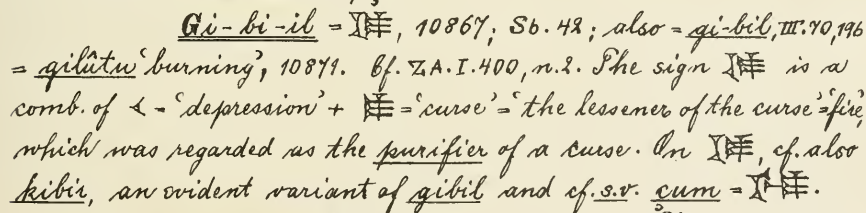 Gi-bi-il = , 10867; Sb. 42; also = gi-bil, III. 70, 196
= qilûtu 'burning', 10871. Cf. Z.A. I. 400, n. 2. The sign is a
comb. of 𒌋 = 'depression' + = 'curse' = 'the lessener of the curse' = 'fire',
which was regarded as the purifier of a curse. On , cf. also
kibir, an evident variant of gibil and cf. s.v. cum = .